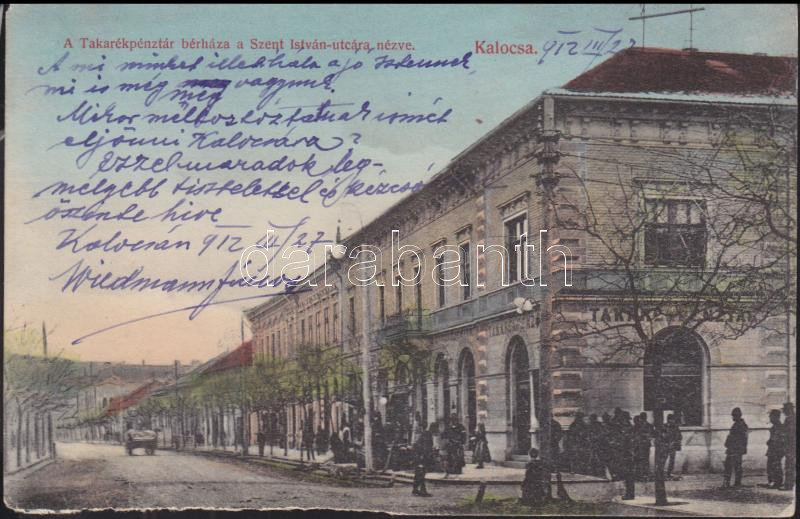 A Takarékpénztár bérháza a Szent István-utcára nézve.
Kalocsa. 912 III/27
A mi minket illet hála a jó Istennek
mi is még meg vagyunk.
Mikor méltóztatnak ismét
eljönni Kalocsára?
Ezzel maradok leg-
mélyebb tisztelettel és kézcsó
őszinte híve
Kalocsán 912 III/27
Wiedmann János
darabanth
TAKARÉKPÉNZTÁR